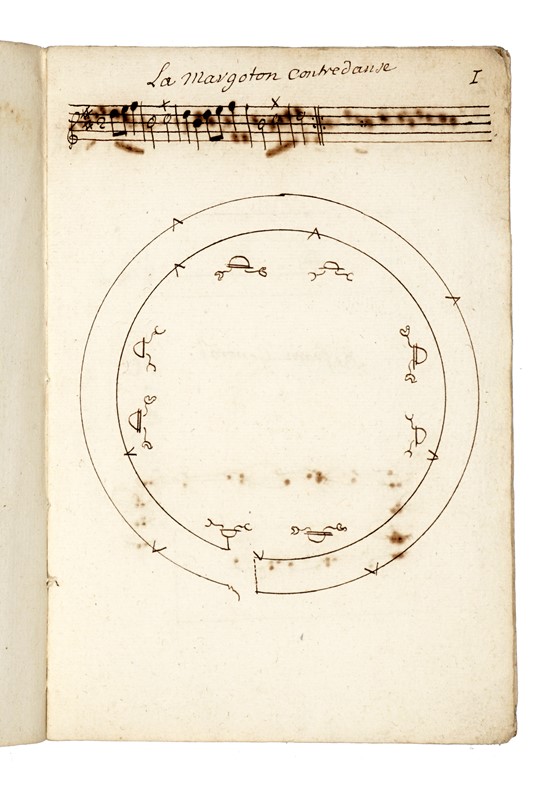 La Margoton Contredanse
I